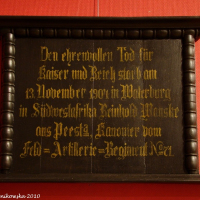 Den ehrenvollen Tod für
Kaiser und Reich starb am
13 November 1904 in Waterburg
in Südwestafrika Reinhold Manske
aus Peest, Kanonier vom
Feld=Artillerie=Regiment No 27
2010